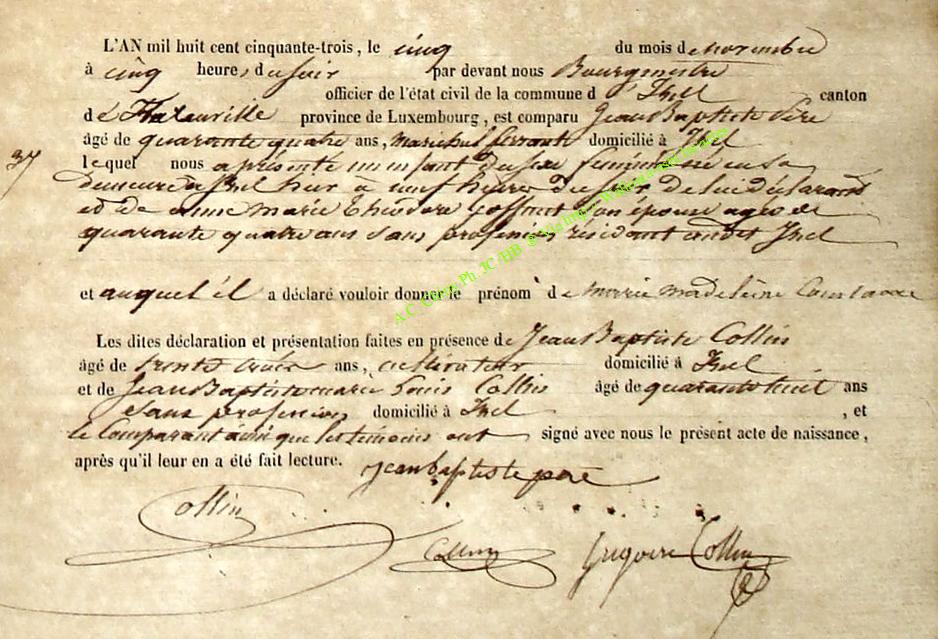 L'AN mil huit cent cinquante-trois, le cinq du mois de novembre
à cinq heures du soir par devant nous Bourgmestre
officier de l'état civil de la commune d'Izel canton
de Florenville province de Luxembourg, est comparu Jean Baptiste Père
âgé de quarante quatre ans, marechal ferrante domicilié à Izel
37 lequel nous a présenté un enfant du sexe féminin né en sa
demeure à Izel hier a neuf heures du soir de lui déclarant
et de anne marie Theodore son épouse agée de
quarante quatre ans sans profession résidant audit Izel
et auquel il a déclaré vouloir donner le prénom de marie madeleine Constance
Les dites déclaration et présentation faites en présence de Jean Baptiste Collin
âgé de trente ans, cultivateur domicilié à Izel
et de Jean Baptiste marie Louis Collin âgé de quarante huit ans
sans profession domicilié à Izel , et
le Comparant ainsi que les témoins ont signé avec nous le présent acte de naissance,
après qu'il leur en a été fait lecture.
jean baptiste pere
Collin
Collin
Grégoire Collin